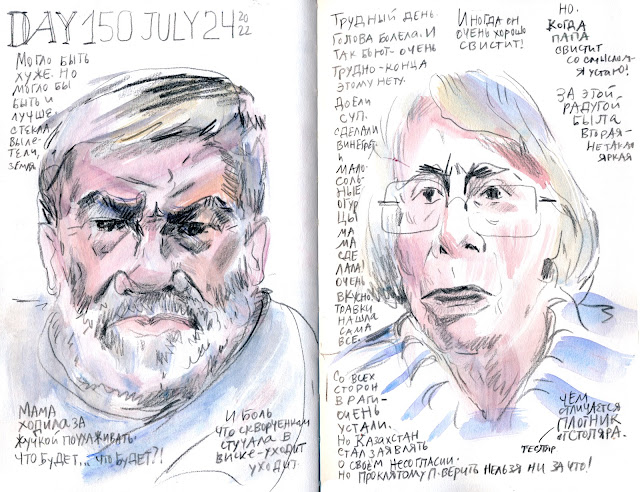 DAY 150 JULY 24 2022
Могло быть
хуже. Но
могло бы
быть и
лучше.
Стекла
выле-
тели,
земля
Мама
ходила за
Жучкой поухаживать.
Что будет... что будет?!
И боль
что скворчонком
стучала в
виске-уходит
уходит.
Трудный день.
Голова болела. И
так бьют-очень
трудно-конца
этому нету.
Доели
суп.
Сделали
винегрет
и
мало-
соль-
ные
огур
цы
ма
ма
сде
лала!
Очень
вкусно.
Травки
нашла
сама
все.
Со всех
сторон
враги-
очень
устали.
Но Казахстан
стал заявлять
о своем несогласии.
Но проклятому П. верить нельзя ни за что!
Иногда он
очень хорошо
свистит!
Но.
Когда
папа
свистит
со смыслом-
я устаю!
За этой
радугой
была
вторая-
не такая
яркая
Чем
отличается
плотник
от столяра.